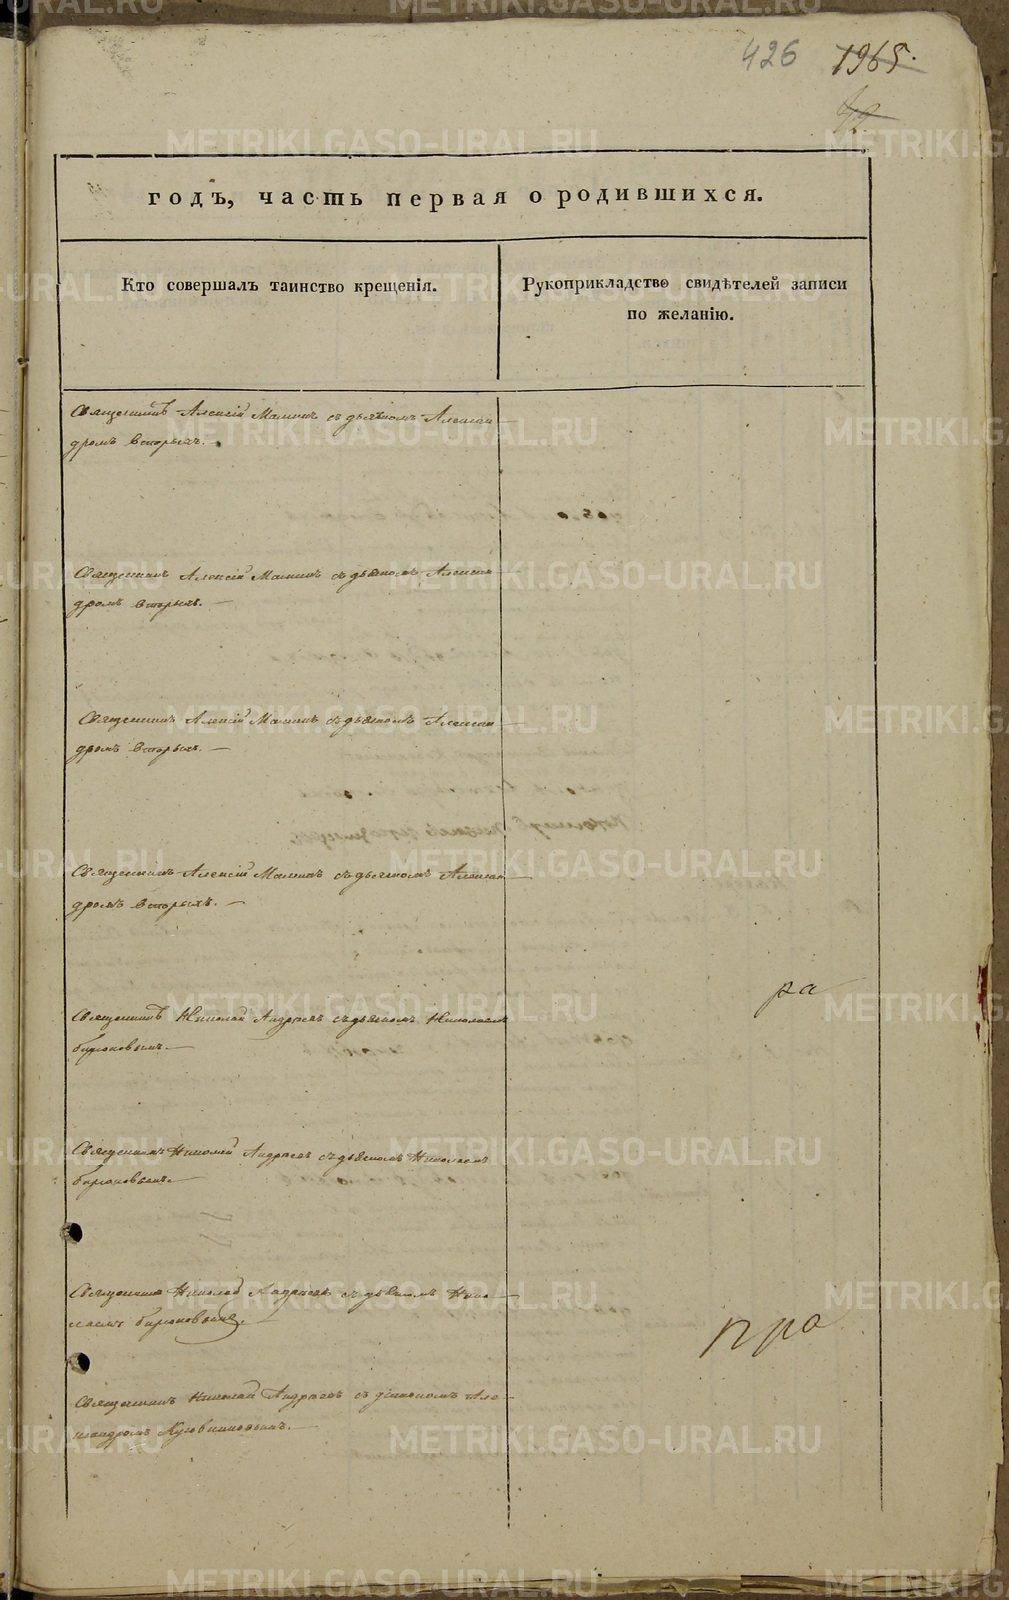 426 1965.
годъ, часть первая о родившихся.
Кто совершалъ таинство крещенія.
Рукоприкладство свидѣтелей записи
по желанію.
Священникъ Алексій Маминъ съ дьячкомъ Алексан
дромъ Вторыхъ.
Священникъ Алексій Маминъ съ дьячкомъ Алексан
дромъ Вторыхъ.
Священникъ Алексій Маминъ съ дьячкомъ Алексан
дромъ Вторыхъ.
Священникъ Алексій Маминъ съ дьячкомъ Алексан
дромъ Вторыхъ.
Священникъ Николай Андреевъ съ дьячкомъ Николаемъ
Бирюковымъ.
ра
Священникъ Николай Андреевъ съ дьячкомъ Николаемъ
Бирюковымъ.
Священникъ Николай Андреевъ съ дьячкомъ Нико
лаемъ Бирюковымъ.
пра
Священникъ Николай Андреевъ съ діакономъ Але
ксандромъ
METRIKI.GASO-URAL.RU